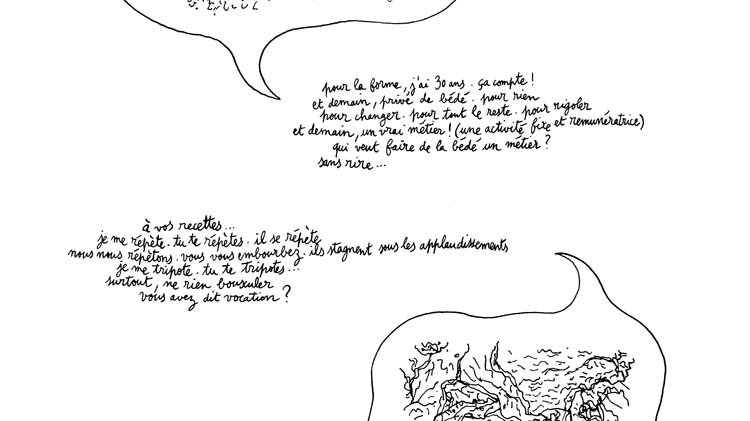 pour la forme, j'ai 30 ans. ça compte!
et demain, privé de bédé. pour rien
pour changer. pour tout le reste. pour rigoler
et demain, un vrai métier! (une activité fixe et remunératrice)
qui veut faire de la bédé un métier?
sans rire...
à vos recettes...
je me répète. tu te répètes. il se répète
nous nous répétons. vous vous embourbez. ils stagnent sous les applaudissements
je me tripote. tu te tripotes...
surtout, ne rien bousculer
vous avez dit vocation?